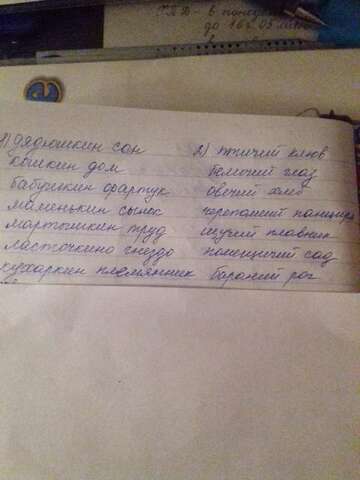 1) дядюшкин сон
кошкин дом
бабушкин фартук
маменькин сынок
мартышкин труд
ласточкино гнездо
кухаркин племянник
2) птичий клюв
беличий глаз
овечий хлеб
черепаший панцирь
щучий плавник
помещичий сад
бараний рог